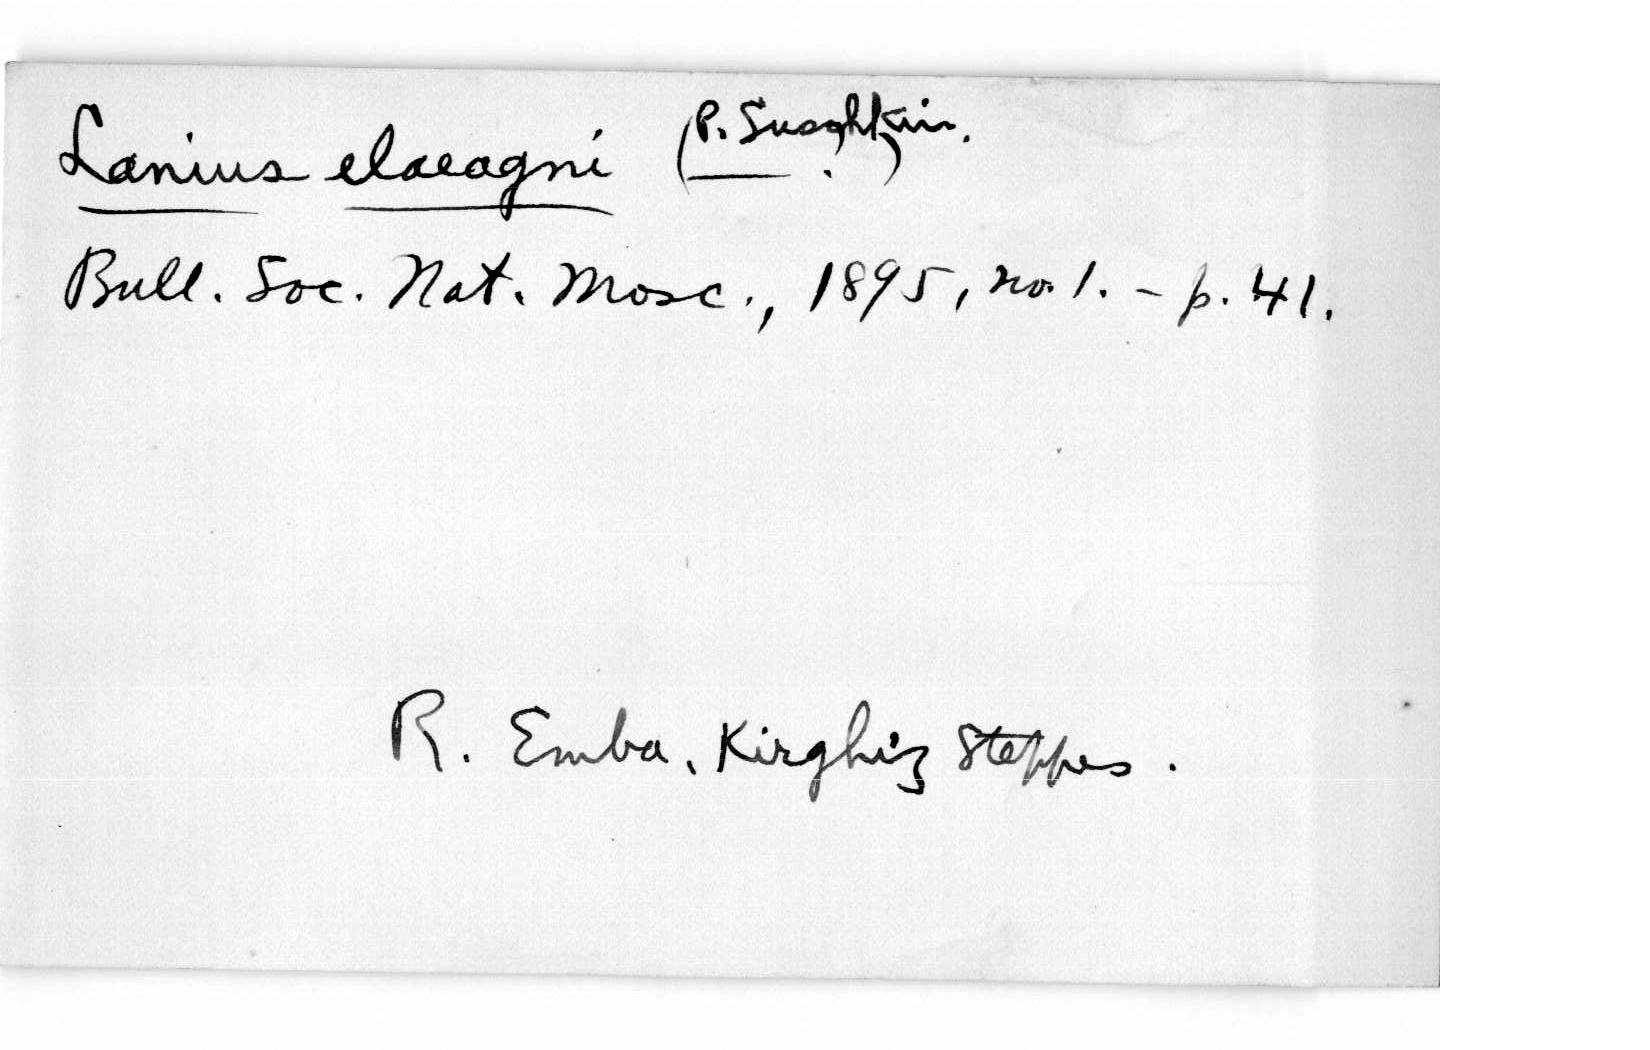 Lanius elaeagni (P. Suschkin.)
Bull. Soc. Nat. Mosc., 1895, no. 1. - p. 41.
R. Emba, Kirghiz Steppes.